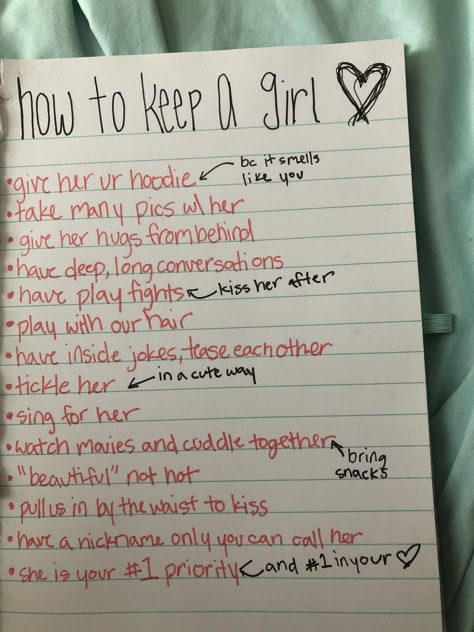 how to keep a girl ♡
•give her ur hoodie
bc it smells
like you
•take many pics w/ her
•give her hugs from behind
•have deep, long conversations
•have play fights
kiss her after
•play with our hair
•have inside jokes, tease each other
•tickle her
in a cute way
•sing for her
•watch movies and cuddle together
bring
snacks
•"beautiful" not hot
•pull us in by the waist to kiss
•have a nickname only you can call her
•she is your #1 priority
and #1 in your ♡